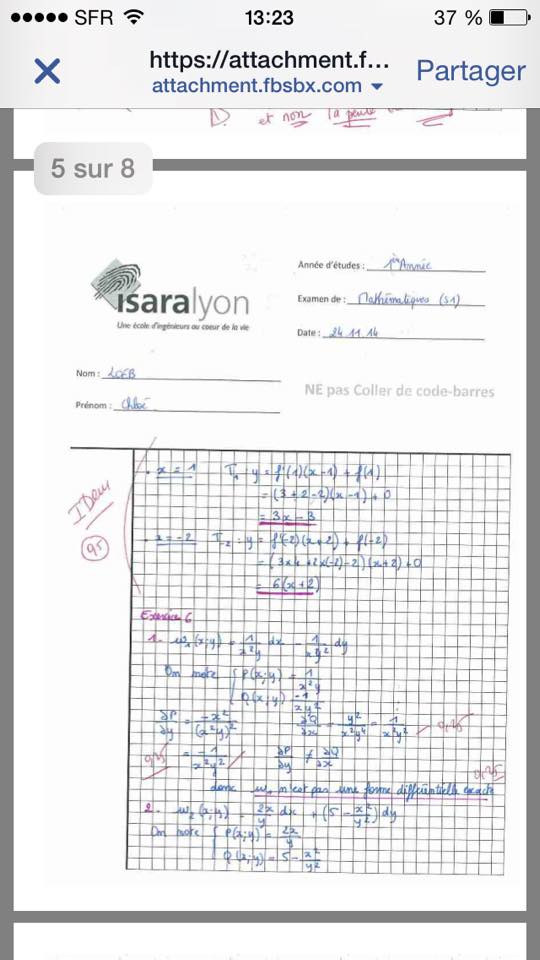 SFR 13:23 37 %
https://attachment.f...
attachment.fbsbx.com ▼
Partager
et non la
5 sur 8
isaralyon
Une école d'ingénieurs au coeur de la vie
Année d'études : 1ère Année
Examen de : Mathématiques (S1)
Date : 24.11.14
Nom : LOEB
Prénom : Chloé
NE pas Coller de code-barres
Idem
. x = 1 T₁ : y = f'(1)(x-1) + f(1)
= (3+2-2)(x-1)+0
= 3x-3
. x = -2 T₂ : y = f'(-2)(x+2) + f(-2)
= (3x4 + 2x(-2)-2)(x+2)+0
= 6(x+2)
Exercice 6
1. w₁(x;y) = 1/x²y dx - 1/xy² dy
On note { P(x;y) = 1/x²y
Q(x;y) = -1/xy²
∂P/∂y = -x²/(x²y)² ∂Q/∂x = y²/x²y⁴ = 1/x²y² 0,25
0,25 = -1/x²y² ∂P/∂y ≠ ∂Q/∂x 0,25
donc w₁ n'est pas une forme différentielle exacte
2. w₂(x;y) = 2x/y dx + (5 - x²/y²) dy
On note { P(x;y) = 2x/y
Q(x;y) = 5 - x²/y²